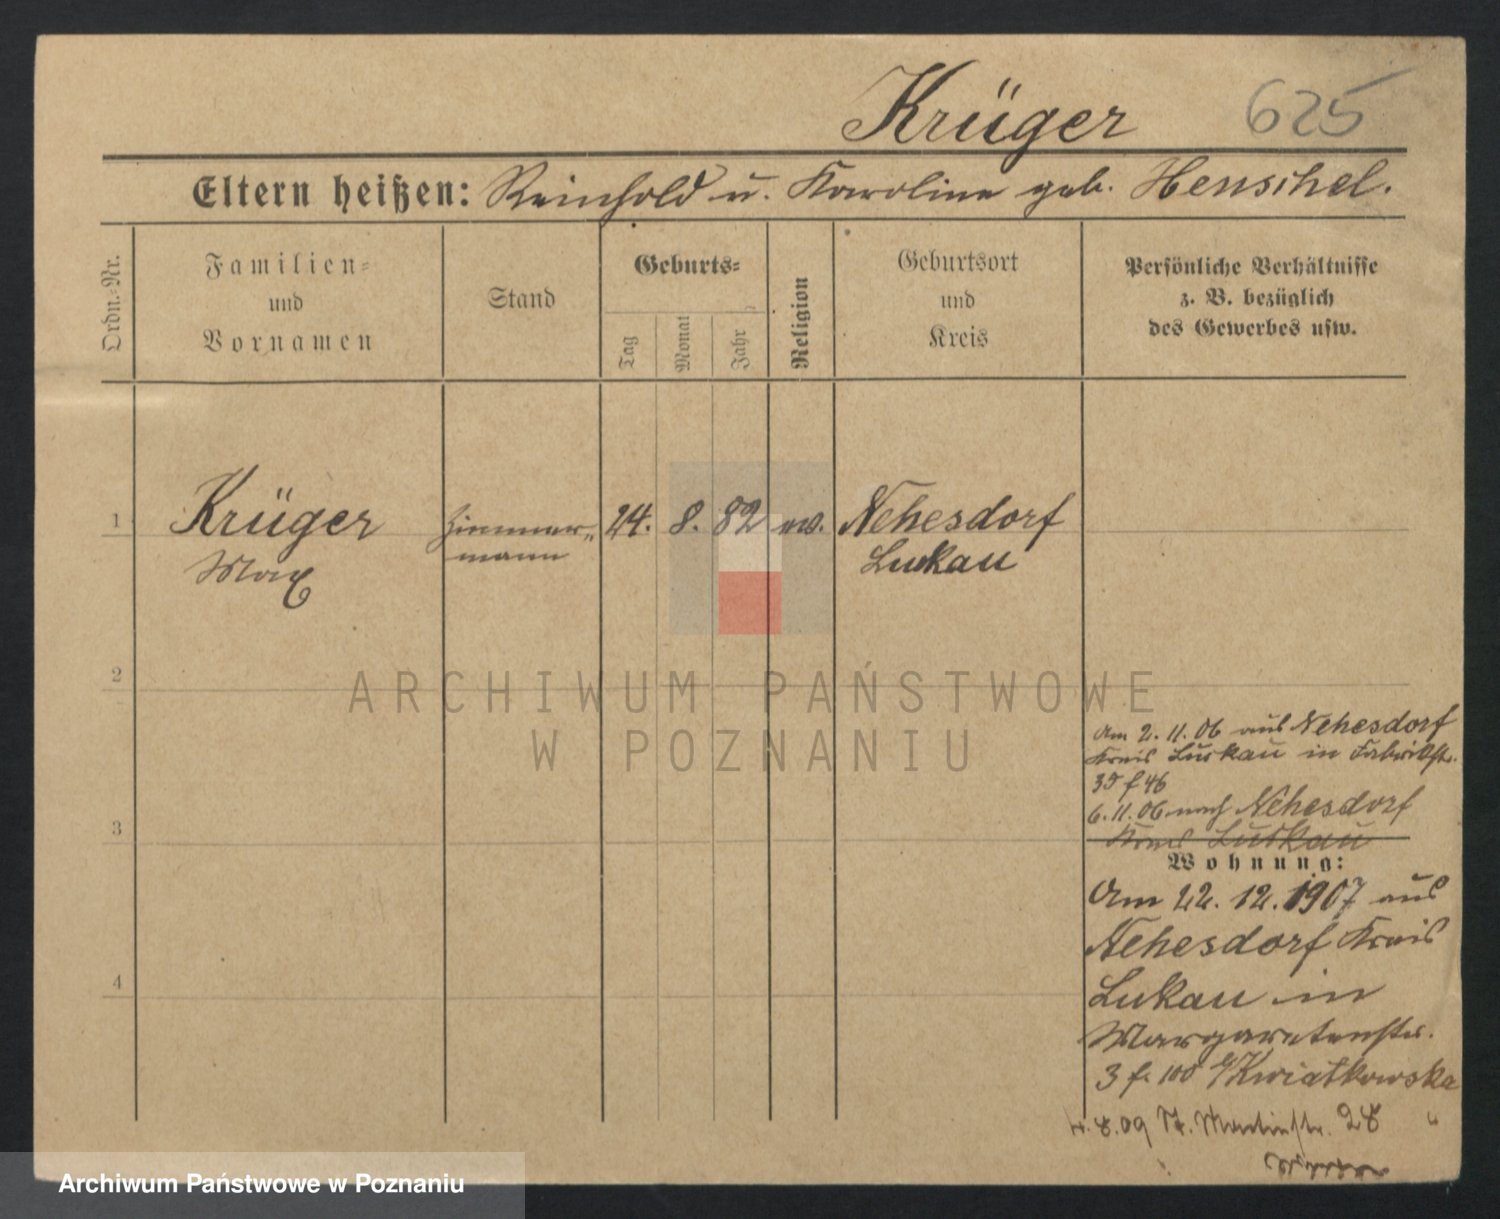 Krüger 625
Eltern heißen: Reinhold u. Karoline geb. Henschel.
Ordn.=Nr.
Familien=
und
Vornamen
Stand
Geburts=
Tag
Monat
Jahr
Religion
Geburtsort
und
Kreis
Persönliche Verhältnisse
z. B. bezüglich
des Gewerbes usw.
1 Krüger Zimmer= 24. 8. 82 ev. Nehesdorf
Max mann Luckau
2
3
4
Am 2. 11. 06 aus Nehesdorf
Kreis Luckau in Fabrikstr.
35 f 46
6. 11. 06 nach Nehesdorf
Kreis Luckau
Wohnung:
Am 22. 12. 1907 aus
Nehesdorf Kreis
Lukau in
Margaretenstr.
3 f. 100 Kwiatkowska
8. 09 St. Martinstr. 28 "
ARCHIWUM PAŃSTWOWE
W POZNANIU
Archiwum Państwowe w Poznaniu